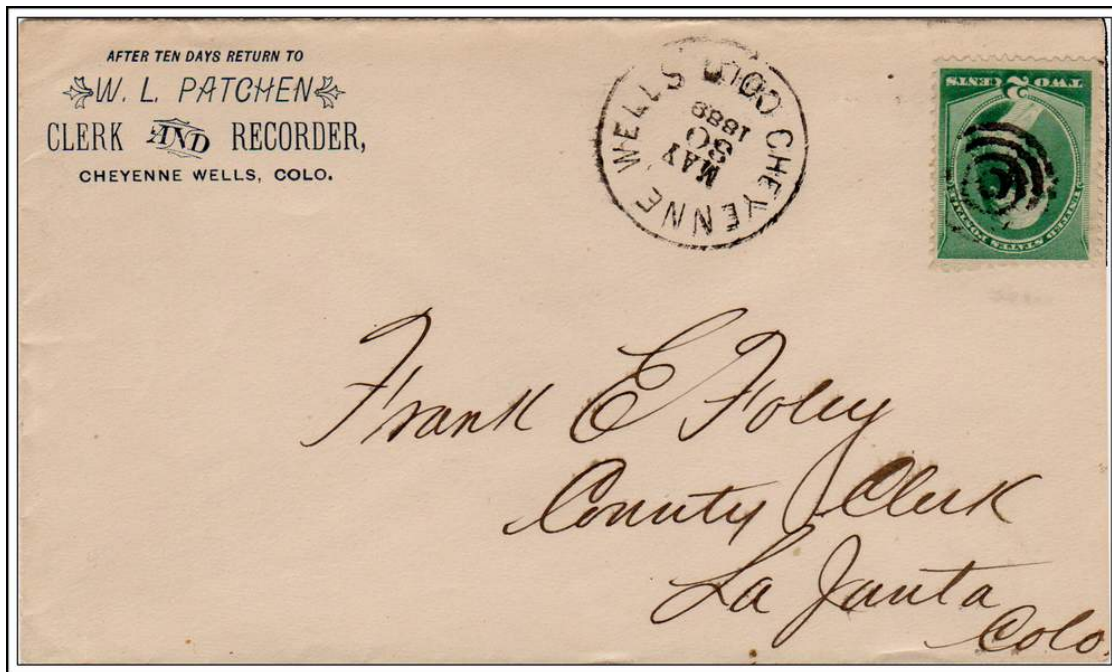 AFTER TEN DAYS RETURN TO
W. L. PATCHEN
CLERK AND RECORDER,
CHEYENNE WELLS, COLO.
CHEYENNE WELLS COLO
MAY
30
1889
TWO 2 CENTS
UNITED STATES POSTAGE
Frank E Foley
County Clerk
La Junta
Colo.